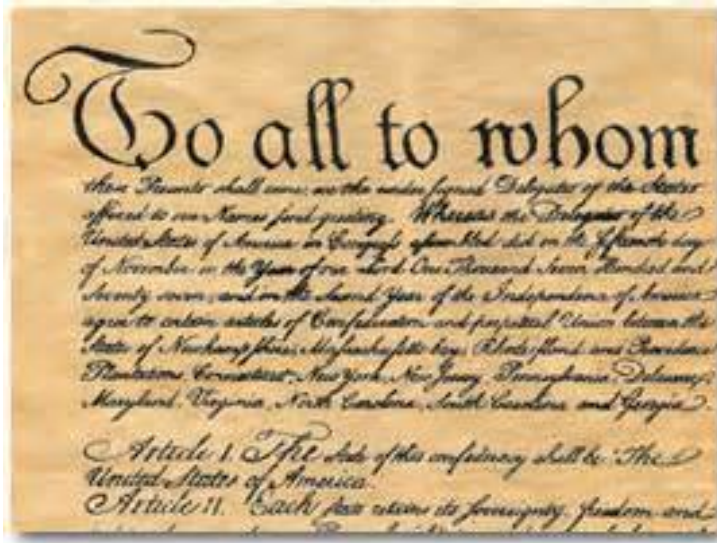 To all to whom
these Presents shall come, we the under signed Delegates of the States
affixed to our Names send greeting. Whereas the Delegates of the
United States of America in Congress assembled did on the fifteenth day
of November in the Year of our Lord One Thousand Seven Hundred and
Seventy seven, and on the Second Year of the Independence of America
agree to certain articles of Confederation and perpetual Union between the
States of Newhampshire, Massachusetts bay, Rhode island and Providence
Plantations, Connecticut, New York, New Jersey, Pennsylvania, Delaware,
Maryland, Virginia, North Carolina, South Carolina and Georgia.
Article I. The stile of this confederacy shall be "The
United States of America.
Article II. Each state retains its sovereignty, freedom and